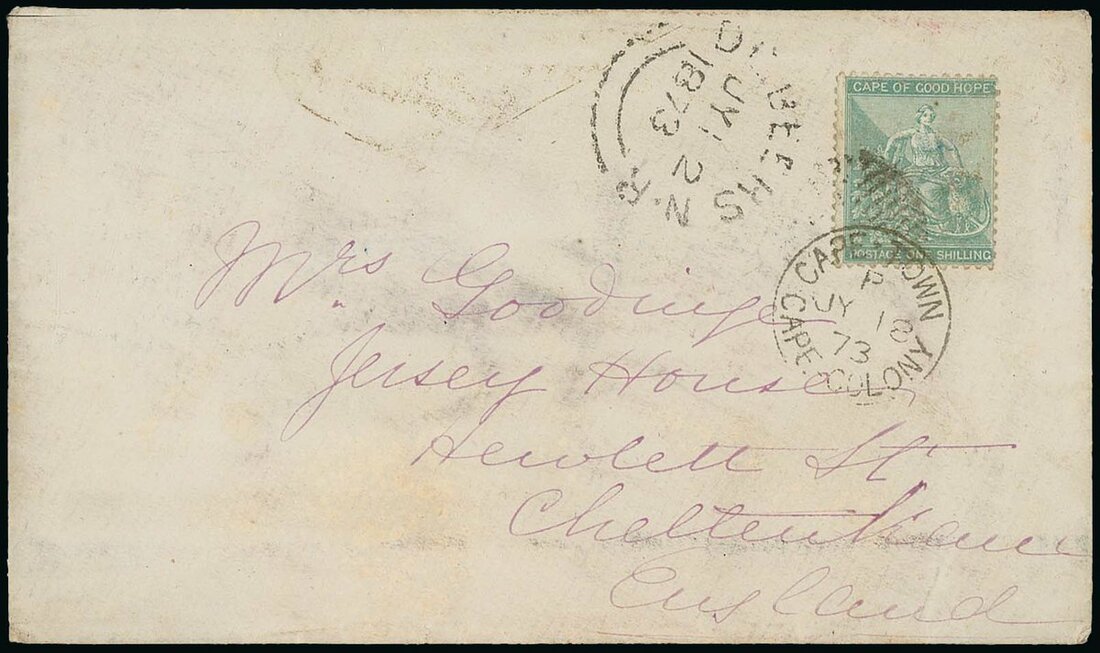 DE BEERS N.R.
JY 12
1873
CAPE OF GOOD HOPE
POSTAGE ONE SHILLING
CAPE TOWN
P
JY 18
73
CAPE COLONY
Mrs Goodinge
Jersey House
Hewlett St
Cheltenham
England